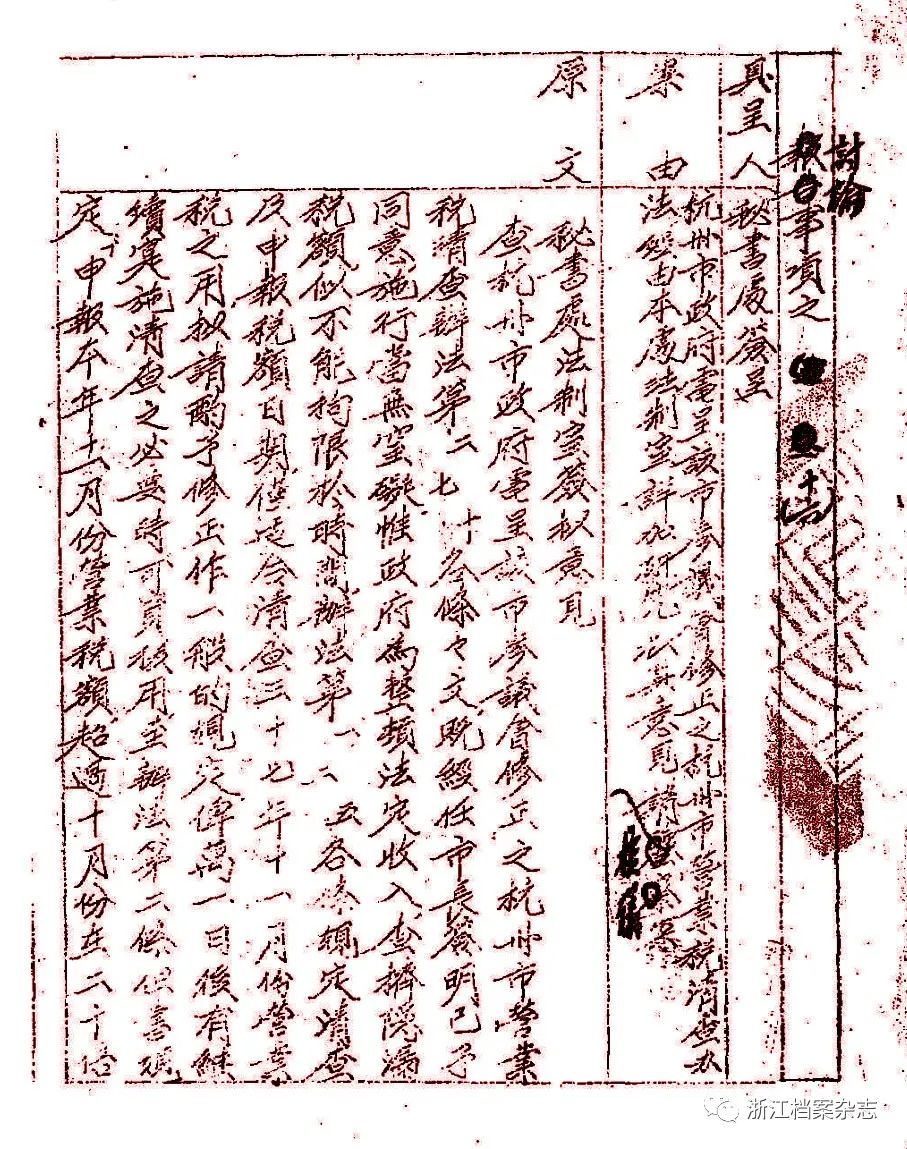 討論
報告事項之 十六
具呈人 秘書處簽呈
案由 杭州市政府電呈該市參議會修正之杭州市營業稅清查辦
法經由本處法制室詳加研究公具意見請
原文
秘書處法制室簽擬意見
查杭州市政府電呈該市參議會修正之杭州市營業
稅清查辦法第二七十各條々文既經任市長簽明已予
同意施行當無窒礙惟政府為整頓法定收入查擠隱漏
稅額似不能拘限於時間辦法第一二五各條規定清查
及申報稅額日期僅適合清查三十七年十一月份營業
稅之用擬請酌予修正作一般的規定俾萬一日後有繼
續實施清查之必要時可資援用至辦法第二條但書項
定「申報本年十一月份營業稅額超過十月份在二十倍
浙江档案杂志